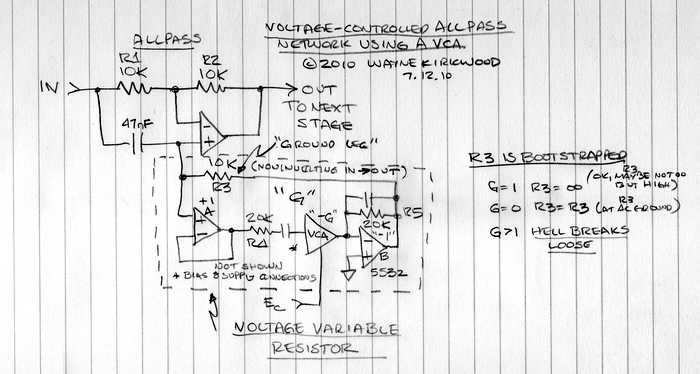 ALLPASS
VOLTAGE-CONTROLLED ALLPASS
NETWORK USING A VCA
© 2010 WAYNE KIRKWOOD
7.12.10
R1
10K
R2
10K
IN
OUT
TO NEXT
STAGE
47nF
"GROUND LEG"
(NONINVERTING IN→OUT)
10K
R3
"G"
+1
A
20K
R4
*
"-G"
VCA
R5
20K
"-1"
B
5532
NOT SHOWN
* BIAS & SUPPLY CONNECTIONS
Ec
VOLTAGE VARIABLE
RESISTOR
R3 IS BOOTSTRAPPED
G=1 R3=∞ (OK, R3 MAYBE NOT ∞
BUT HIGH)
G=0 R3=R3 (R3 AT AC GROUND)
G>1 HELL BREAKS
LOOSE